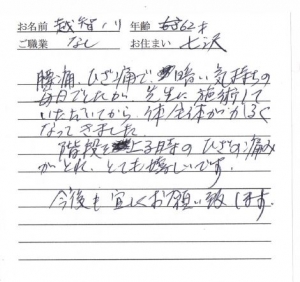 お名前 越智 年齢 62才
ご職業 なし お住まい 七沢
腰痛、ひざ痛で暗い気持ちの
毎日でしたが 先生に施術して
いただいてから、体全体がかるく
なってきました。
階段を上る時の ひざの痛み
がとれ、とても嬉しいです。
今後も宜しくお願い致します。